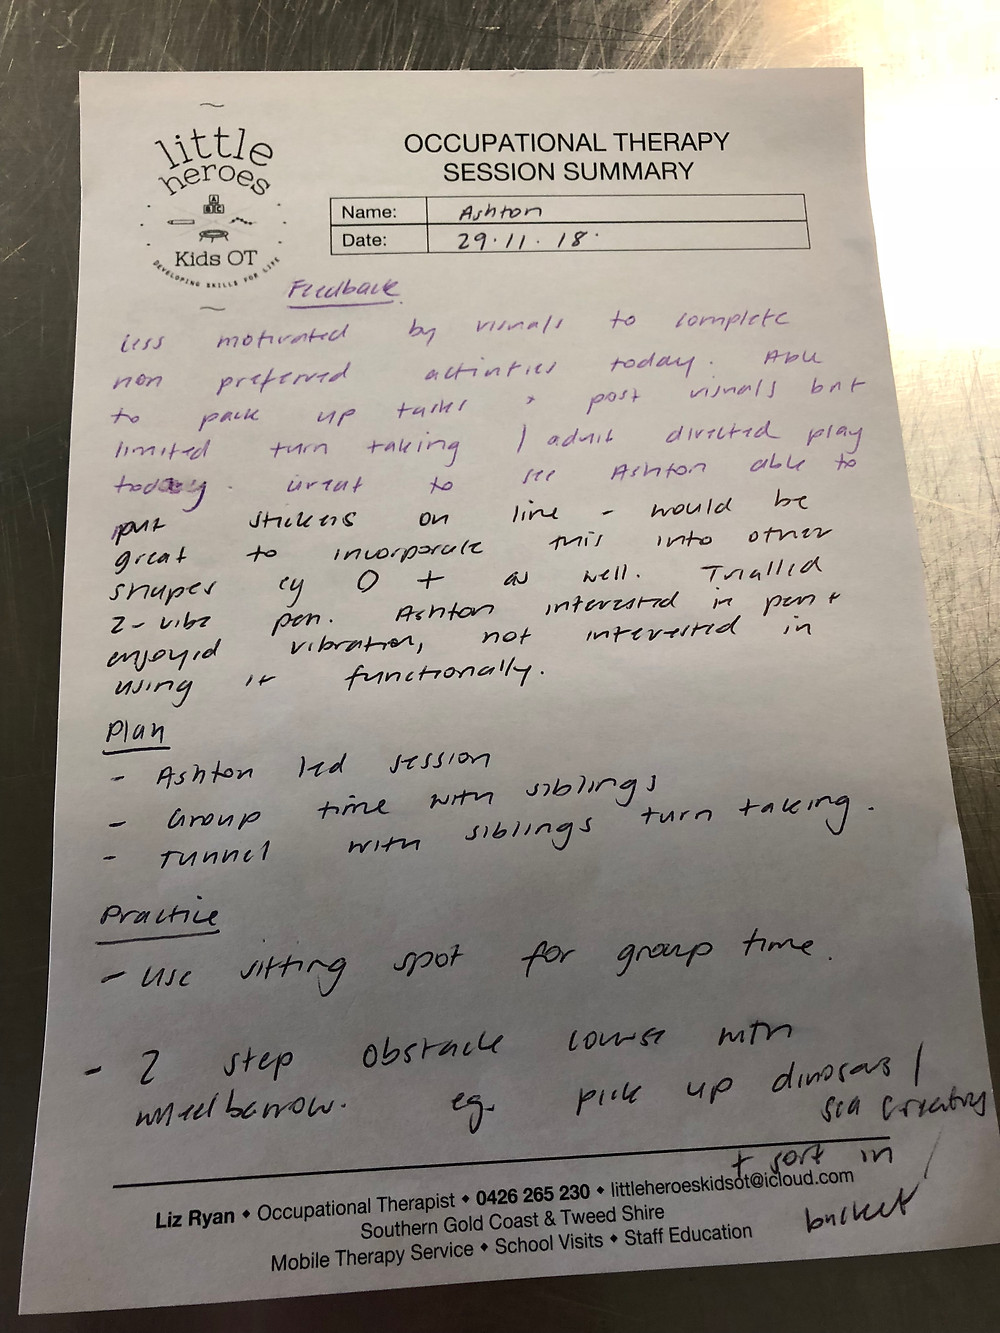 little
heroes
A
B C
Kids OT
DEVELOPING SKILLS FOR LIFE
OCCUPATIONAL THERAPY
SESSION SUMMARY
Name: Ashton
Date: 29.11.18.
Feedback
less motivated by visuals to complete
non preferred activities today. Able
to pack up tasks + post visuals but
limited turn taking / adult directed play
today. Great to see Ashton able to
put stickers on line - would be
great to incorporate this into other
shapes eg O + as well. Trialled
z-vibe pen. Ashton interested in pen +
enjoyed vibration, not interested in
using it functionally.
Plan
- Ashton led session
- Group time with siblings
- Tunnel with siblings turn taking.
Practice
- Use sitting spot for group time.
- 2 step obstacle course with
wheelbarrow. eg. pick up dinosaurs /
sea creatures
+ sort in
bucket
Liz Ryan ♦ Occupational Therapist ♦ 0426 265 230 ♦ littleheroeskidsot@icloud.com
Southern Gold Coast & Tweed Shire
Mobile Therapy Service ♦ School Visits ♦ Staff Education